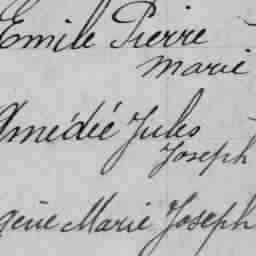 Emile Pierre
Marie
Amédée Jules
Joseph
gène Marie Joseph